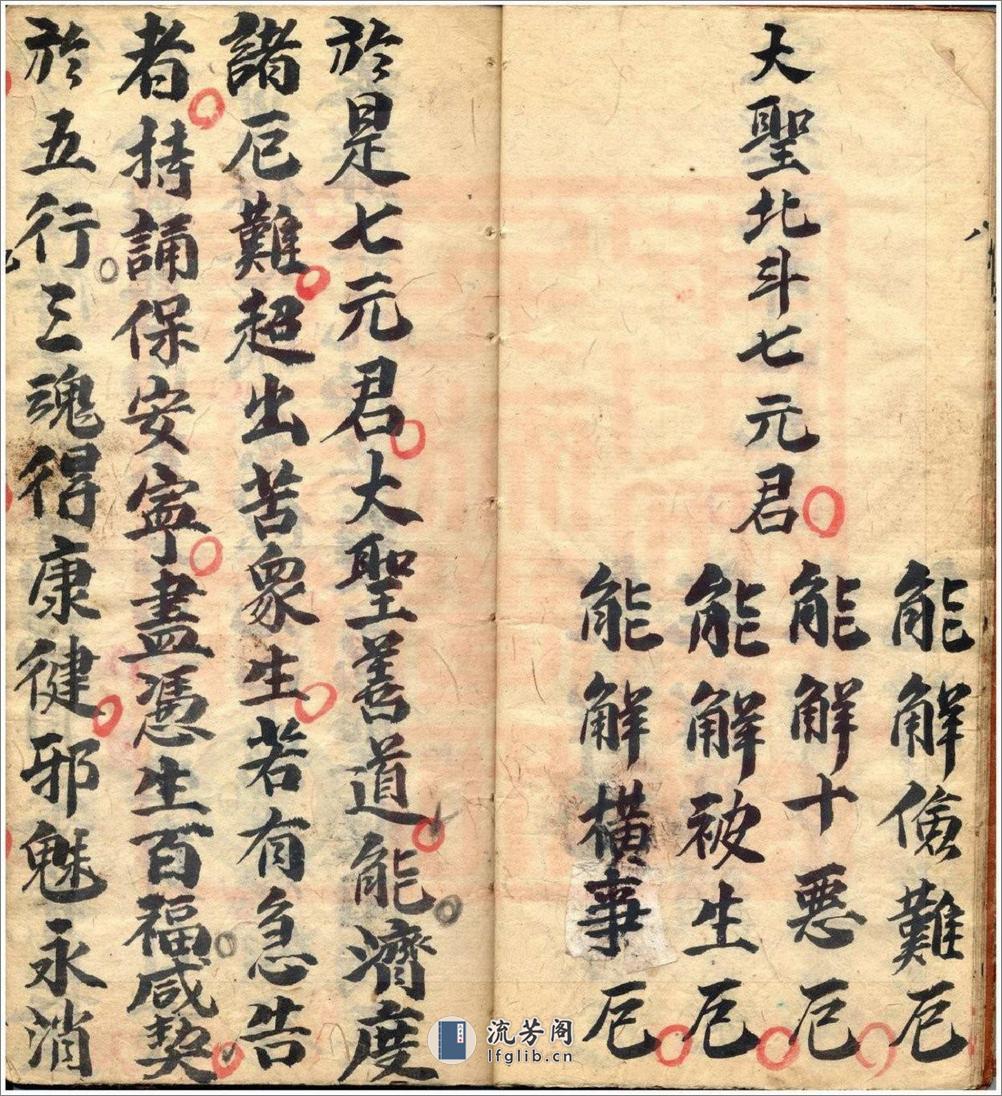 大聖北斗七元君
能解儉難厄
能解十惡厄
能解被生厄
能解橫事厄
於是七元君大聖善道能濟度
諸厄難超出苦衆生若有急告
者持誦保安寧盡憑生百福咸契
於五行三魂得康徤邪魅永消
八
流芳阁
lfglib.cn